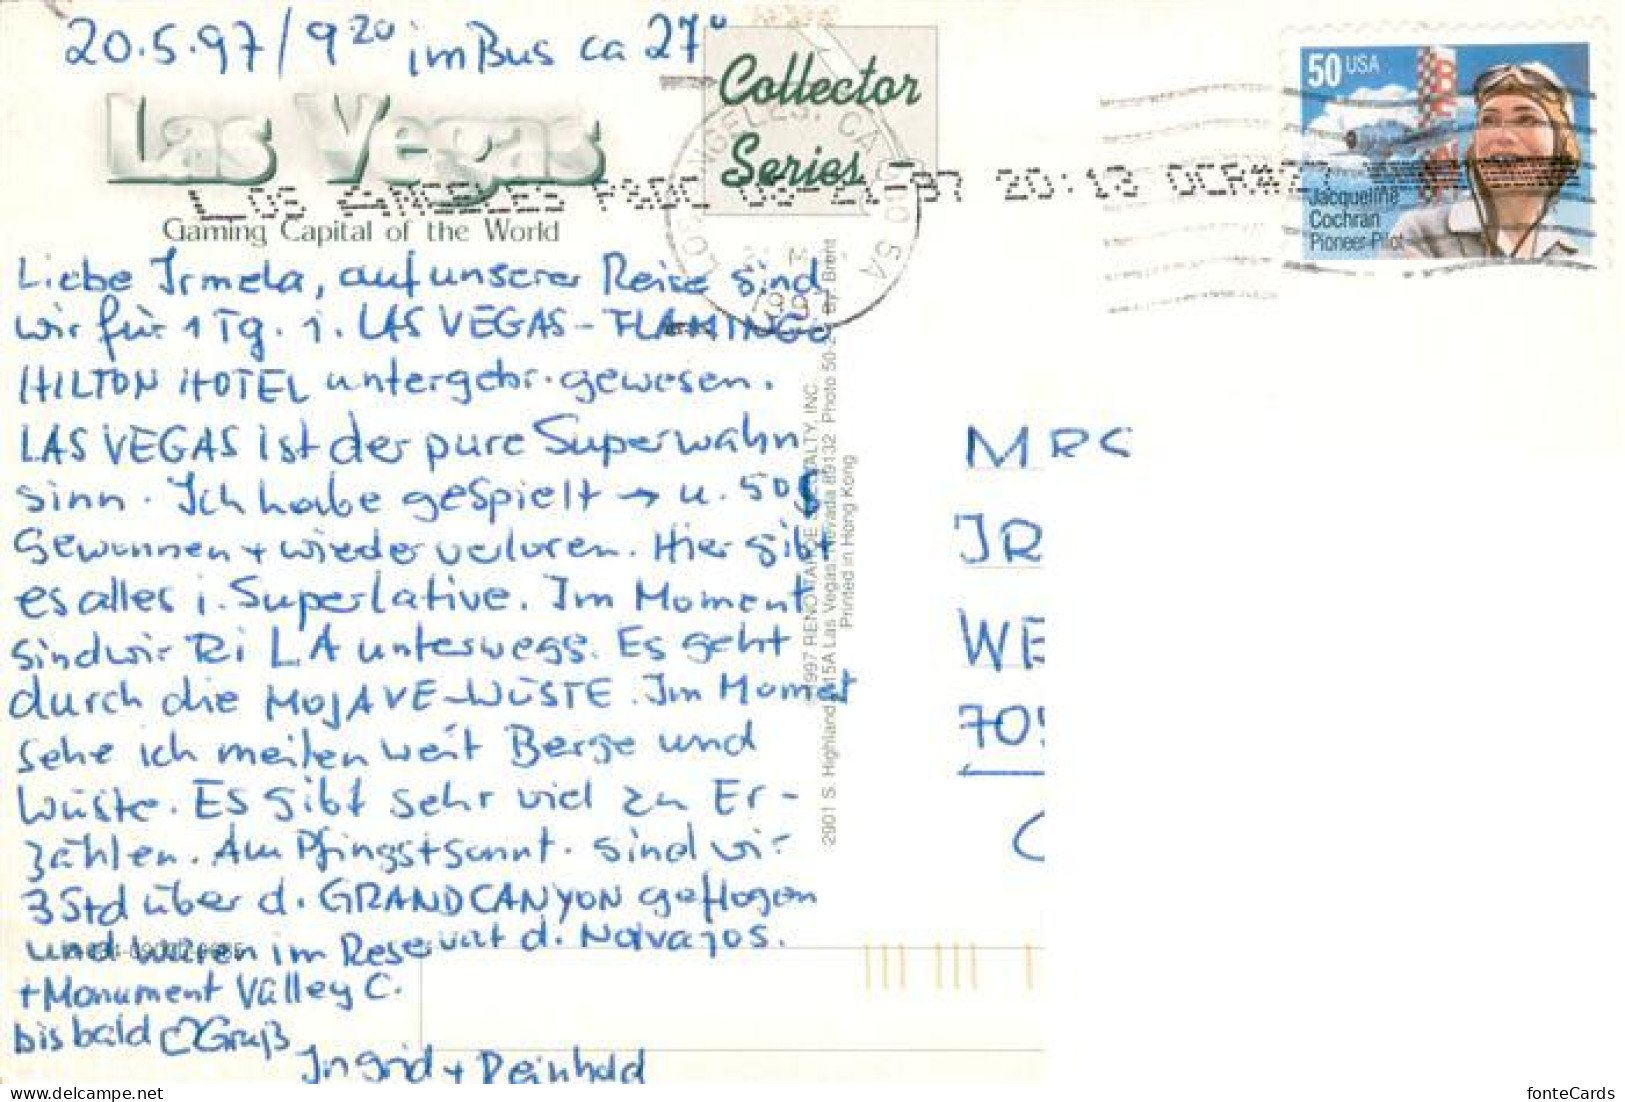 20.5.97/9.20 im Bus ca 27°
Las Vegas
Gaming Capital of the World
Collector
Series
LOS ANGELES, CA
1997
LOS ANGELES P&DC 20:13
50 USA
Jacqueline
Cochran
Pioneer Pilot
Liebe Irmela, auf unserer Reise sind
wir für 1 Tg. i. LAS VEGAS - FLAMINGO
HILTON HOTEL untergebr. gewesen.
LAS VEGAS ist der pure Superwahn
sinn. Ich habe gespielt → u. 50$
Gewonnen + wieder verloren. Hier gibt
es alles i. Superlative. Im Moment
sind wir Ri LA unterwegs. Es geht
durch die MOJAVE-WÜSTE. Im Momet
sehe ich meilen weit Berge und
Wüste. Es gibt sehr viel zu Er-
zählen. Am Pfingstsonnt. sind wir
3 Std über d. GRANDCANYON geflogen
und waren im Reservat d. Navajos.
+ Monument Valley C.
bis bald Gruß
Ingrid + Reinhold
©1997 RENO-TAHOE SPECIALTY, INC.
2901 S. Highland #15A Las Vegas Nevada 89132 Photo By: Brent
Printed in Hong Kong
MRS
IR
WE
70
fonteCards